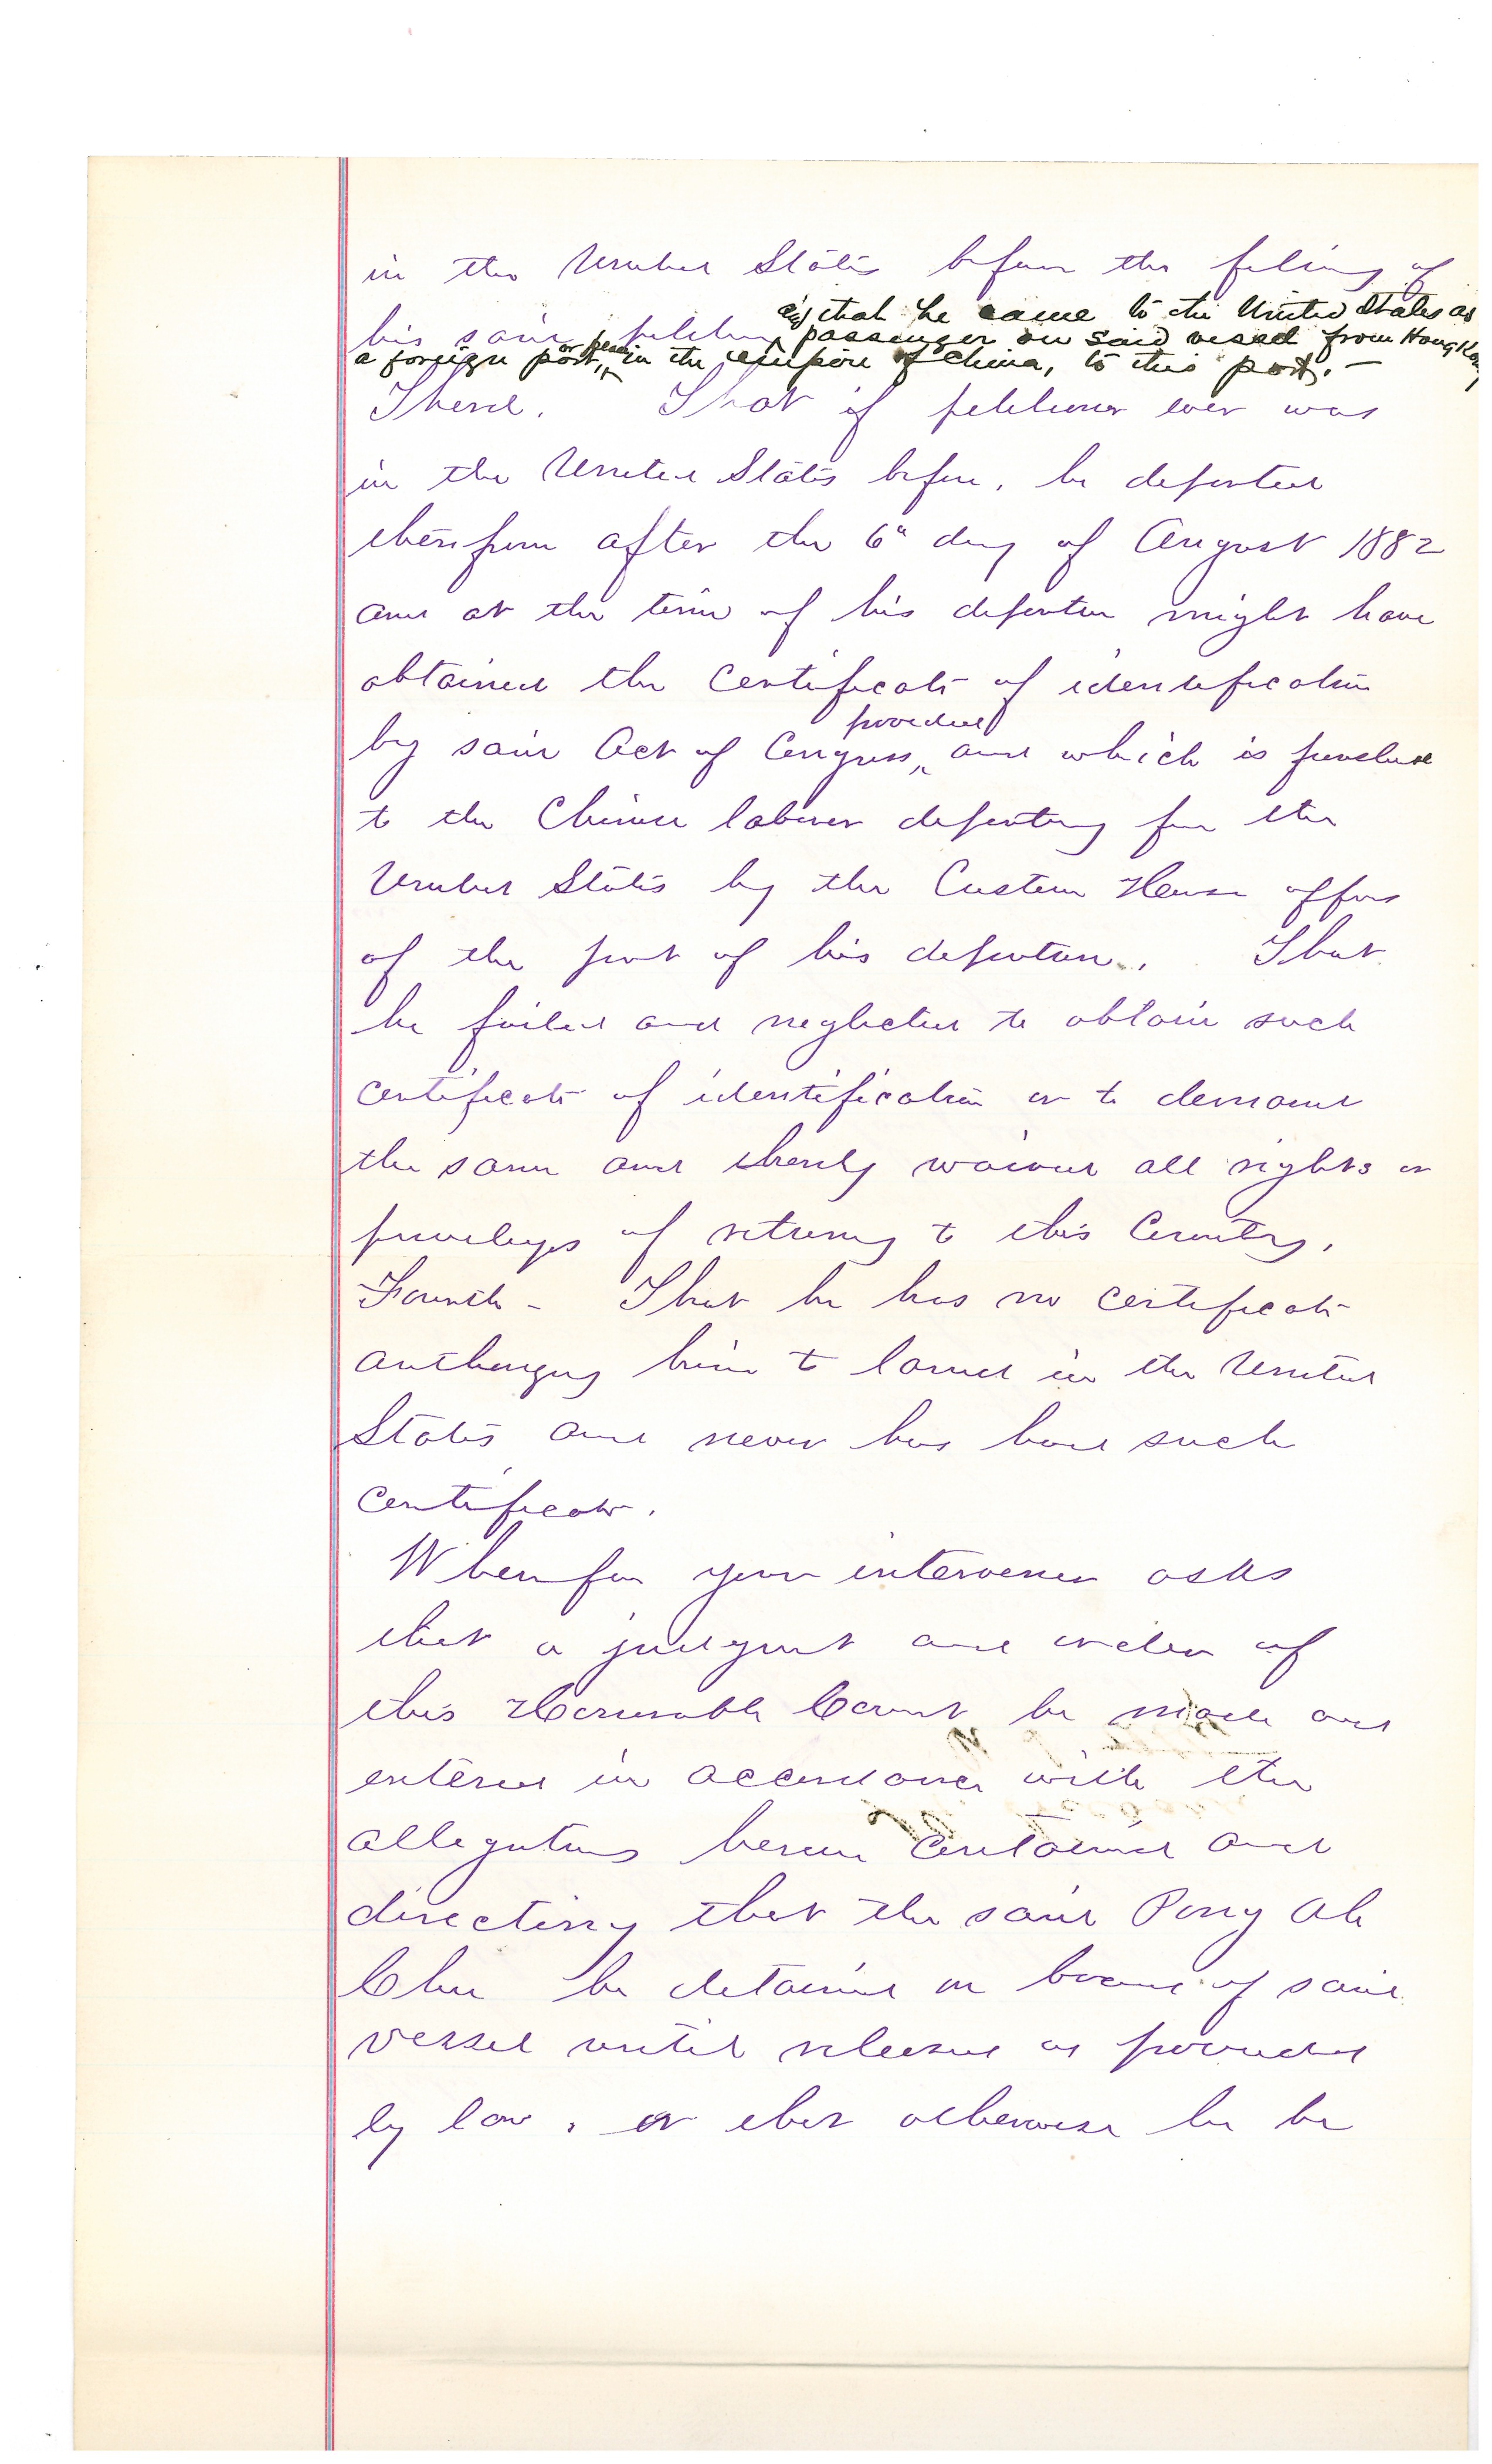 in the United States before the filing of
his said petition, & that he came to the United States as
passenger on said vessel from Hong Kong
a foreign port, or place in the empire of China, to this port. —
Third. That if petitioner ever was
in the United States before, he departed
therefrom after the 6" day of August 1882
and at the time of his departure might have
obtained the certificate of identification
provided
by said Act of Congress, and which is furnished
to the Chinese laborer departing from the
United States by the Custom House officers
of the port of his departure. That
he failed and neglected to obtain such
certificate of identification or to demand
the same and thereby waived all rights or
privileges of returning to this Country.
Fourth - That he has no certificate
authorizing him to land in the United
States and never has had such
certificate.
Wherefore your intervenor asks
that a judgment and order of
this Honorable Court be made and
entered in accordance with the
allegations herein contained and
directing that the said Pong Ah
Chee be detained on board of said
vessel until released as provided
by law, or that otherwise he be